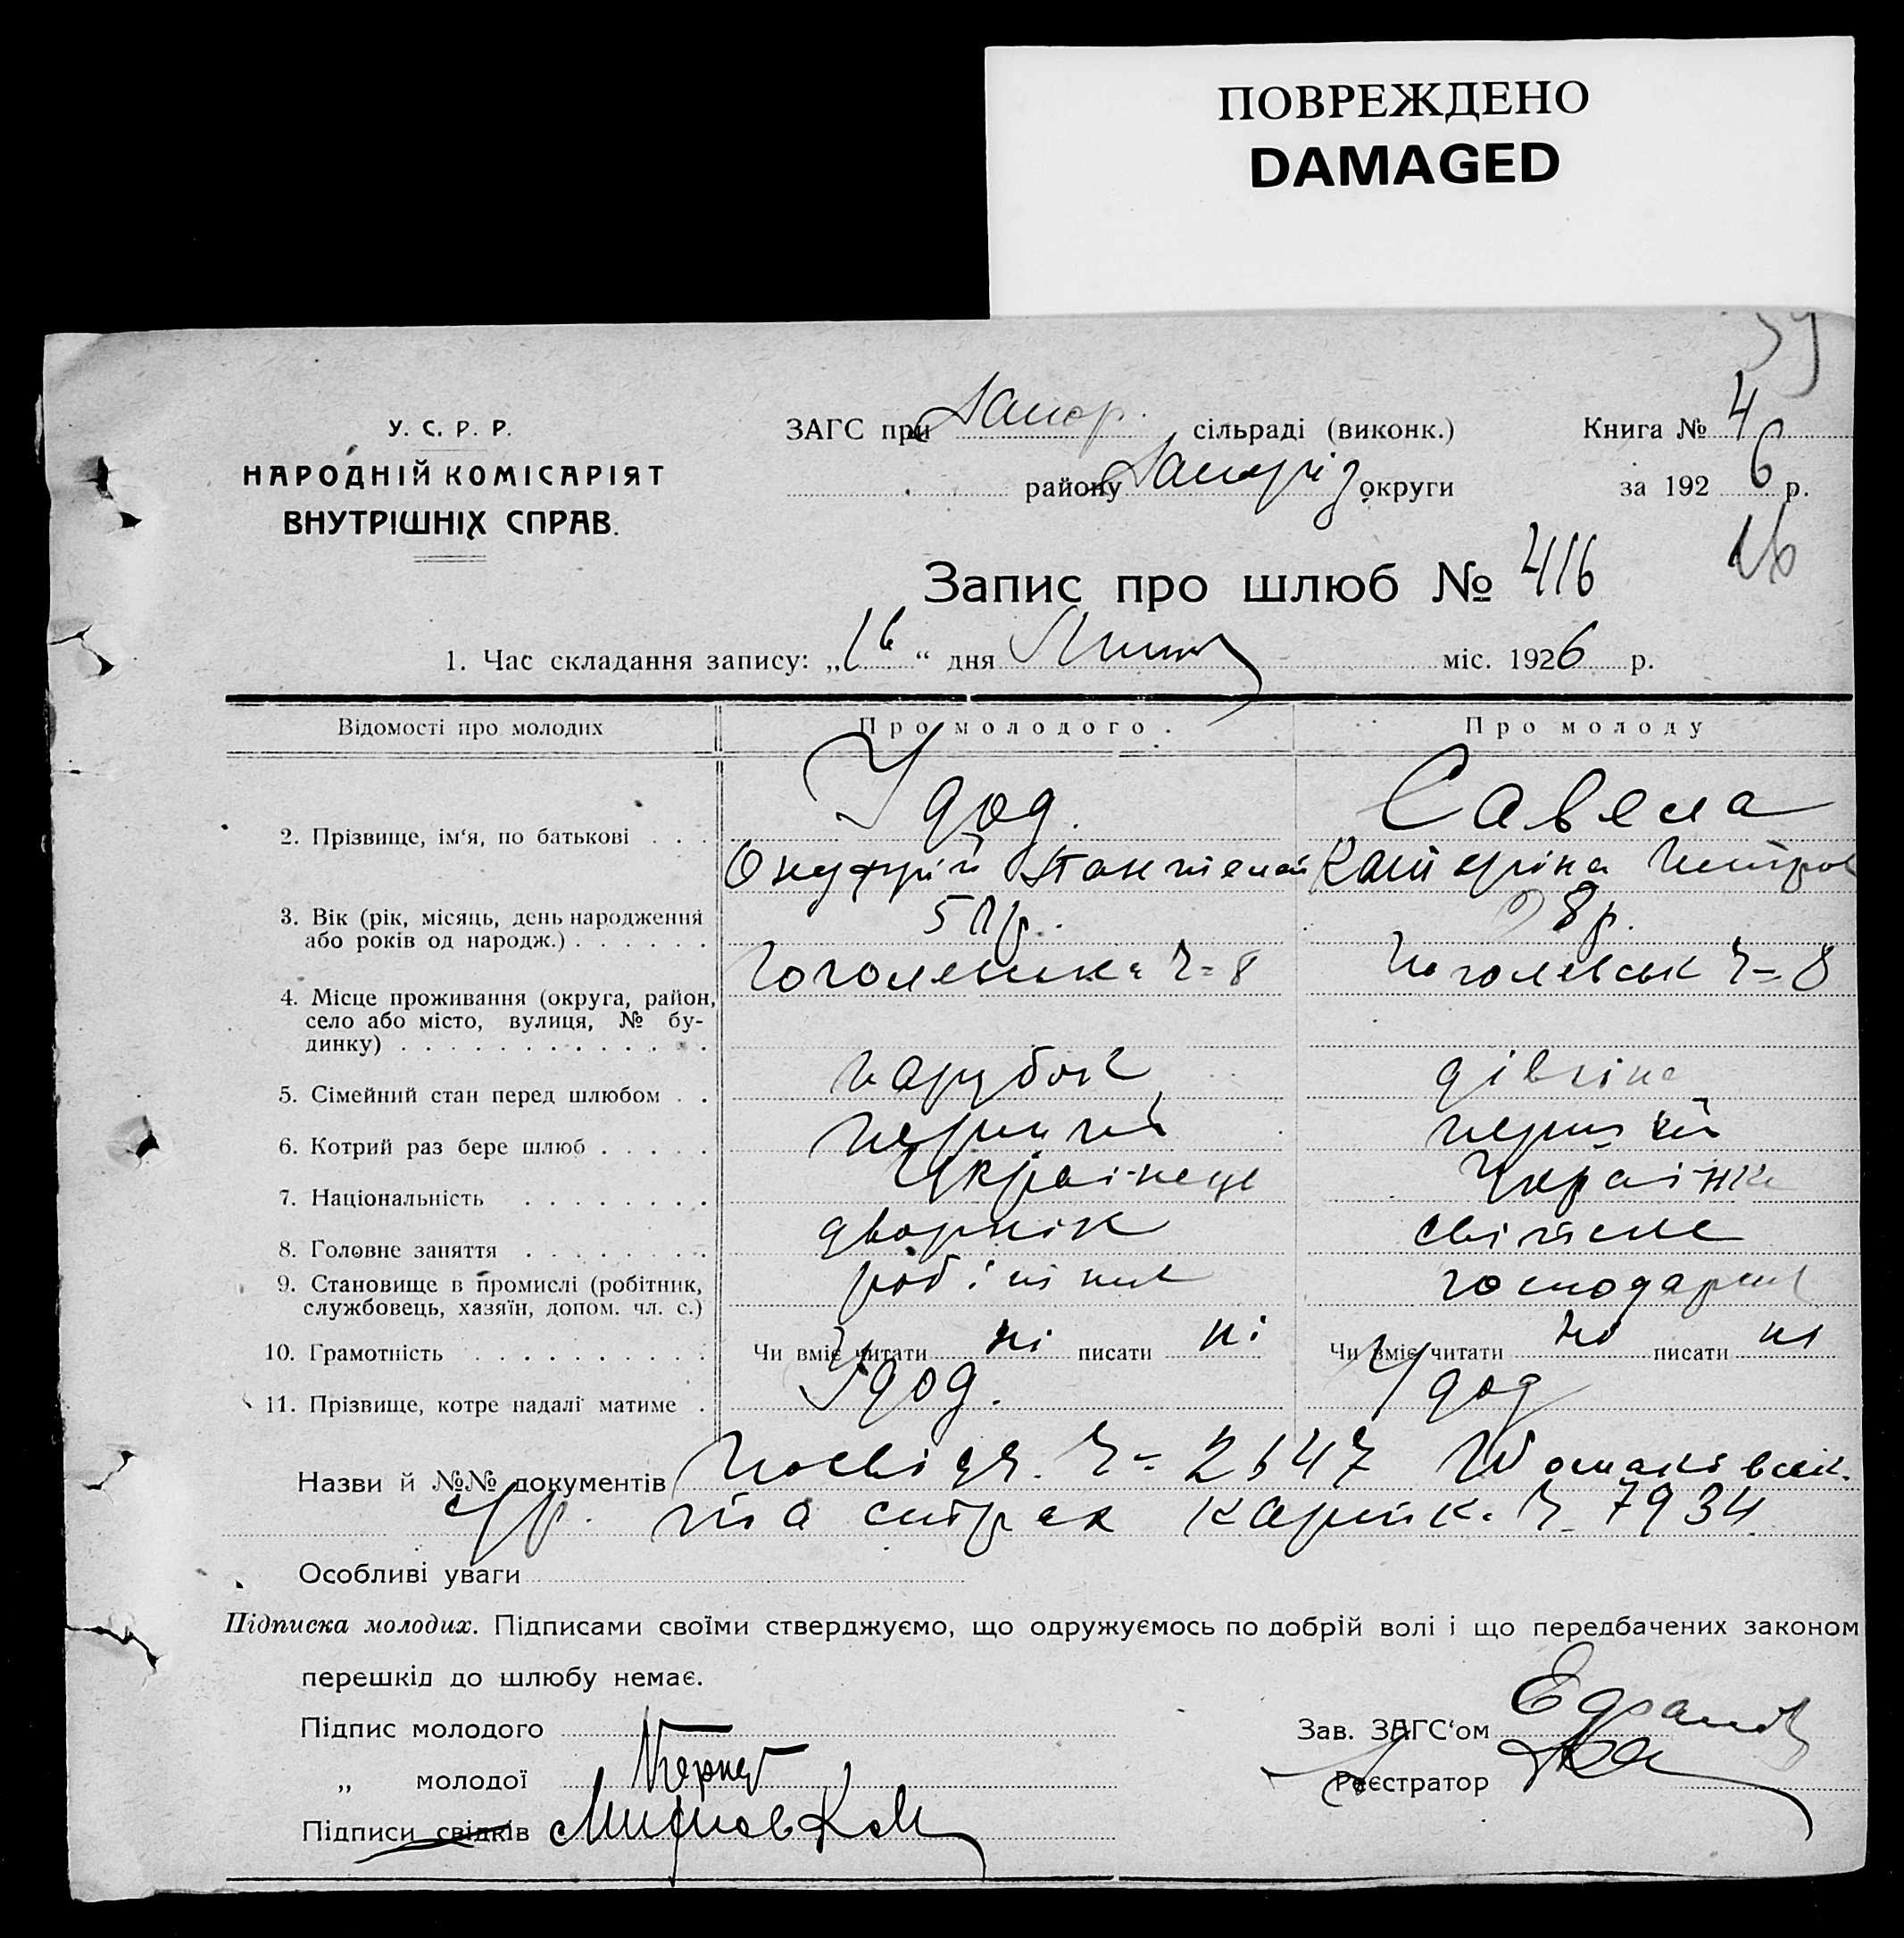 ПОВРЕЖДЕНО
DAMAGED
39
У. С. Р. Р.
НАРОДНІЙ КОМІСАРІЯТ
ВНУТРІШНІХ СПРАВ.
ЗАГС при Запор. сільраді (виконк.) Книга № 4
району Запоріз округи за 1926 р.
Запис про шлюб № 416
16
1. Час складання запису: „16“ дня Липня міс. 1926 р.
Відомості про молодих Про молодого. Про молоду
2. Прізвище, ім‘я, по батькові . . . Удод. Савела
Онуфрій Катеріна Петров
3. Вік (рік, місяць, день народження
або років од народж.) . . . . . . р. 28 р.
4. Місце проживання (округа, район, Ч=8 Гоголевськ Ч=8
село або місто, вулиця, № бу-
динку) . . . . . . . . . . . . .
5. Сімейний стан перед шлюбом . . парубок дівчина
6. Котрий раз бере шлюб . . . . . перший перший
7. Національність . . . . . . . . Українець Українка
8. Головне заняття . . . . . . . . дворнік
9. Становище в промислі (робітник, робітник господарка
службовець, хазяїн, допом. чл. с.)
10. Грамотність . . . . . . . . . Чи вміє читати ні писати ні Чи вміє читати ні писати ні
11. Прізвище, котре надалі матиме . Удод. Удод
Назви й №№ документів Посвідч. Ч= 2647
та страх картк. Ч= 7934
Особливі уваги
Підписка молодих. Підписами своїми стверджуємо, що одружуємось по добрій волі і що передбачених законом
перешкід до шлюбу немає.
Підпис молодого
Зав. ЗАГС‘ом
„ молодої
Реєстратор
Підписи свідків